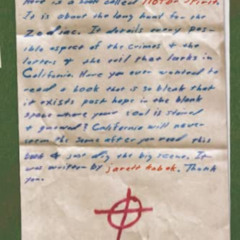 Here is a book called Motor Spirit
It is about the long hunt for the
Zodiac. It details every pos-
sible aspect of the crimes & the
letters & the evil that lurks in
California. Have you ever wanted to
read a book that is so bleak that
it exists past hope in the blank
space where your soul is stained
& gnawed? California will never
seem the same after you read this
book & just dig the big scene. It
was written by Jarett Kobek. Thank
you.